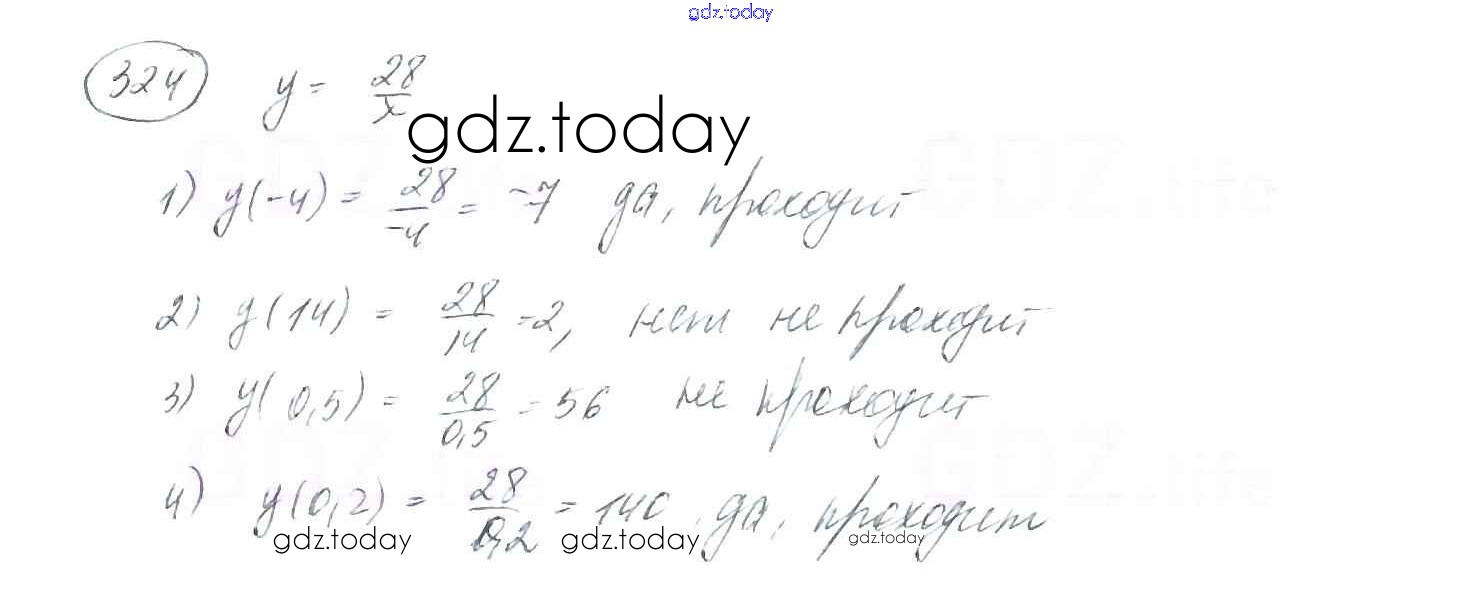 gdz.today
324 y = 28/x
gdz.today
1) y(-4) = 28/-4 = -7 да, проходит
2) y(14) = 28/14 = 2, нет не проходит
3) y(0,5) = 28/0,5 = 56 не проходит
4) y(0,2) = 28/0,2 = 140, да, проходит
gdz.today gdz.today gdz.today